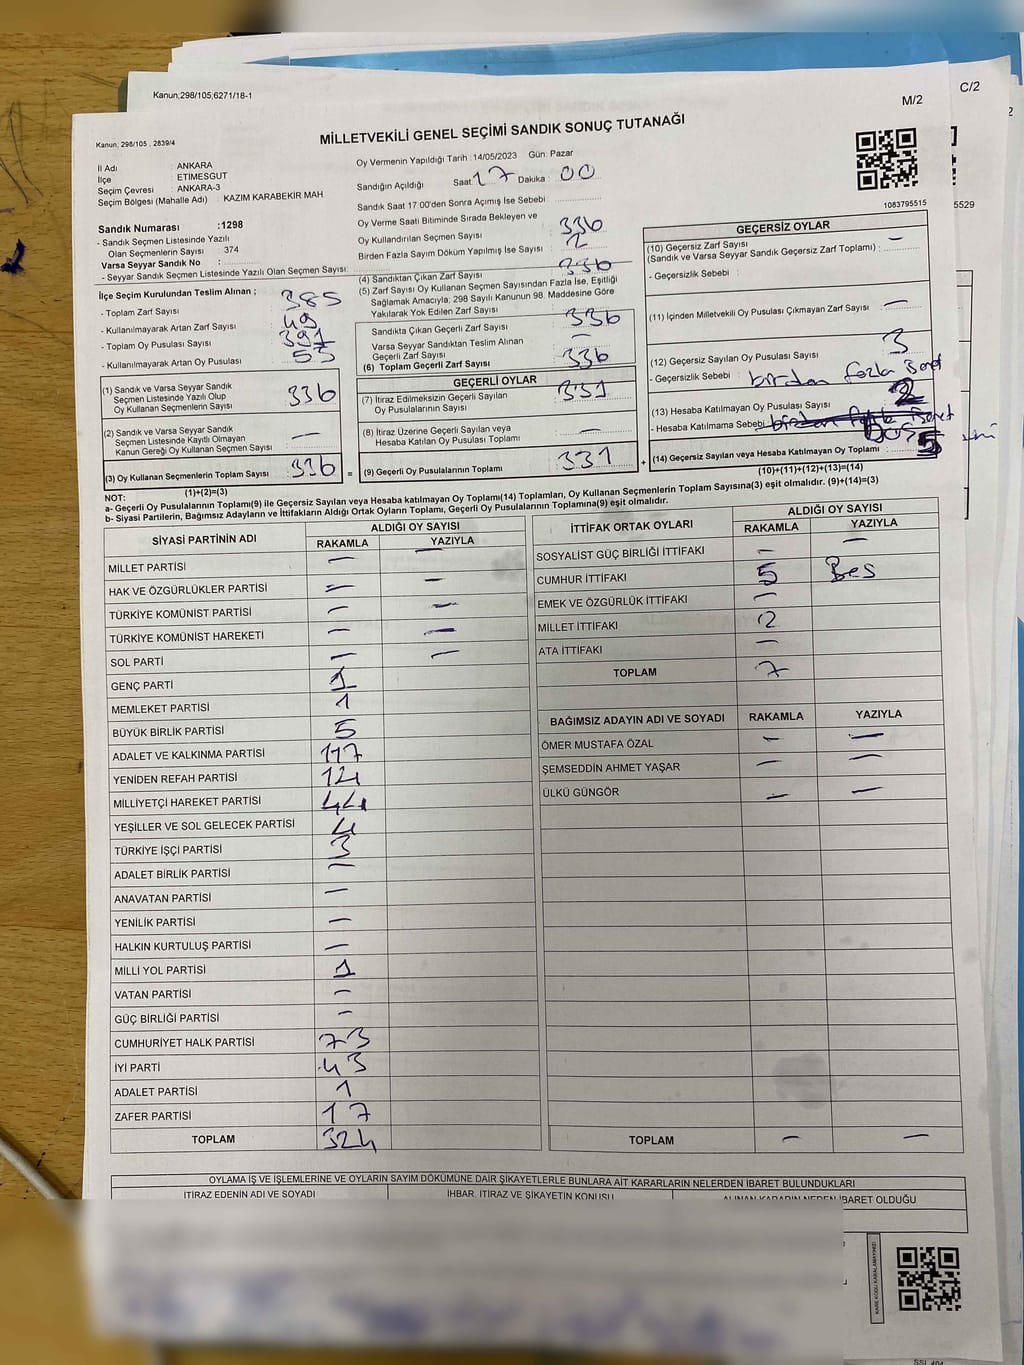 Kanun;298/105;6271/18-1
C/2
M/2
2
Kanun; 298/105 , 2839/4
MİLLETVEKİLİ GENEL SEÇİMİ SANDIK SONUÇ TUTANAĞI
İl Adı : ANKARA
İlçe : ETİMESGUT
Seçim Çevresi : ANKARA-3
Seçim Bölgesi (Mahalle Adı) : KAZIM KARABEKİR MAH
Sandık Numarası :1298
- Sandık Seçmen Listesinde Yazılı
Olan Seçmenlerin Sayısı : 374
Varsa Seyyar Sandık No :
- Seyyar Sandık Seçmen Listesinde Yazılı Olan Seçmen Sayısı:
İlçe Seçim Kurulundan Teslim Alınan ;
- Toplam Zarf Sayısı : 385
- Kullanılmayarak Artan Zarf Sayısı : 49
- Toplam Oy Pusulası Sayısı : 391
- Kullanılmayarak Artan Oy Pusulası : 53
(1) Sandık ve Varsa Seyyar Sandık
Seçmen Listesinde Yazılı Olup
Oy Kullanan Seçmenlerin Sayısı 336
(2) Sandık ve Varsa Seyyar Sandık
Seçmen Listesinde Kayıtlı Olmayan
Kanun Gereği Oy Kullanan Seçmen Sayısı —
(3) Oy Kullanan Seçmenlerin Toplam Sayısı 336
(1)+(2)=(3)
Oy Vermenin Yapıldığı Tarih :14/05/2023 Gün: Pazar
Sandığın Açıldığı Saat: 17 Dakika : 00
Sandık Saat 17:00'den Sonra Açımış İse Sebebi :
Oy Verme Saati Bitiminde Sırada Bekleyen ve
Oy Kullandırılan Seçmen Sayısı : 336
Birden Fazla Sayım Döküm Yapılmış İse Sayısı : 2
(4) Sandıktan Çıkan Zarf Sayısı : 336
(5) Zarf Sayısı Oy Kullanan Seçmen Sayısından Fazla İse, Eşitliği
Sağlamak Amacıyla; 298 Sayılı Kanunun 98. Maddesine Göre
Yakılarak Yok Edilen Zarf Sayısı :
Sandıkta Çıkan Geçerli Zarf Sayısı : 336
Varsa Seyyar Sandıktan Teslim Alınan
Geçerli Zarf Sayısı : —
(6) Toplam Geçerli Zarf Sayısı : 336
GEÇERLİ OYLAR
(7) İtiraz Edilmeksizin Geçerli Sayılan
Oy Pusulalarının Sayısı : 331
(8) İtiraz Üzerine Geçerli Sayılan veya
Hesaba Katılan Oy Pusulası Toplamı : —
= (9) Geçerli Oy Pusulalarının Toplamı : 331 +
1083795515
5529
GEÇERSİZ OYLAR
(10) Geçersiz Zarf Sayısı
(Sandık ve Varsa Seyyar Sandık Geçersiz Zarf Toplamı) : —
- Geçersizlik Sebebi :
(11) İçinden Milletvekili Oy Pusulası Çıkmayan Zarf Sayısı : —
(12) Geçersiz Sayılan Oy Pusulası Sayısı : 3
- Geçersizlik Sebebi : birden fazla
(13) Hesaba Katılmayan Oy Pusulası Sayısı : 2
- Hesaba Katılmama Sebebi :
(14) Geçersiz Sayılan veya Hesaba Katılmayan Oy Toplamı : 5
(10)+(11)+(12)+(13)=(14)
NOT:
a- Geçerli Oy Pusulalarının Toplamı(9) ile Geçersiz Sayılan veya Hesaba katılmayan Oy Toplamı(14) Toplamları, Oy Kullanan Seçmenlerin Toplam Sayısına(3) eşit olmalıdır. (9)+(14)=(3)
b- Siyasi Partilerin, Bağımsız Adayların ve İttifakların Aldığı Ortak Oyların Toplamı, Geçerli Oy Pusulalarının Toplamına(9) eşit olmalıdır.
SİYASİ PARTİNİN ADI ALDIĞI OY SAYISI
RAKAMLA YAZIYLA
MİLLET PARTİSİ — —
HAK VE ÖZGÜRLÜKLER PARTİSİ — —
TÜRKİYE KOMÜNİST PARTİSİ — —
TÜRKİYE KOMÜNİST HAREKETİ — —
SOL PARTİ — —
GENÇ PARTİ 1
MEMLEKET PARTİSİ 1
BÜYÜK BİRLİK PARTİSİ 5
ADALET VE KALKINMA PARTİSİ 117
YENİDEN REFAH PARTİSİ 14
MİLLİYETÇİ HAREKET PARTİSİ 44
YEŞİLLER VE SOL GELECEK PARTİSİ 4
TÜRKİYE İŞÇİ PARTİSİ 3
ADALET BİRLİK PARTİSİ —
ANAVATAN PARTİSİ —
YENİLİK PARTİSİ —
HALKIN KURTULUŞ PARTİSİ —
MİLLİ YOL PARTİSİ 1
VATAN PARTİSİ —
GÜÇ BİRLİĞİ PARTİSİ —
CUMHURİYET HALK PARTİSİ 73
İYİ PARTİ 43
ADALET PARTİSİ 1
ZAFER PARTİSİ 17
TOPLAM 324
İTTİFAK ORTAK OYLARI ALDIĞI OY SAYISI
RAKAMLA YAZIYLA
SOSYALİST GÜÇ BİRLİĞİ İTTİFAKI — —
CUMHUR İTTİFAKI 5 Beş
EMEK VE ÖZGÜRLÜK İTTİFAKI —
MİLLET İTTİFAKI 2
ATA İTTİFAKI —
TOPLAM 7
BAĞIMSIZ ADAYIN ADI VE SOYADI RAKAMLA YAZIYLA
ÖMER MUSTAFA ÖZAL — —
ŞEMSEDDİN AHMET YAŞAR — —
ÜLKÜ GÜNGÖR — —
TOPLAM — —
OYLAMA İŞ VE İŞLEMLERİNE VE OYLARIN SAYIM DÖKÜMÜNE DAİR ŞİKAYETLERLE BUNLARA AİT KARARLARIN NELERDEN İBARET BULUNDUKLARI
İTİRAZ EDENİN ADI VE SOYADI İHBAR, İTİRAZ VE ŞİKAYETİN KONUSU ALINAN KARARIN NEDEN İBARET OLDUĞU
KARE KODU KARALAMAYINIZ!